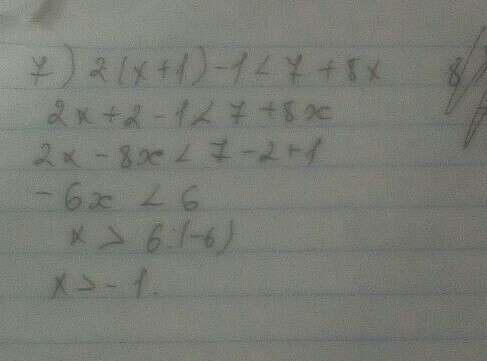 7) 2(x+1)-1<7+8x
2x+2-1<7+8x
2x-8x<7-2+1
-6x<6
x>6:(-6)
x>-1.
8)